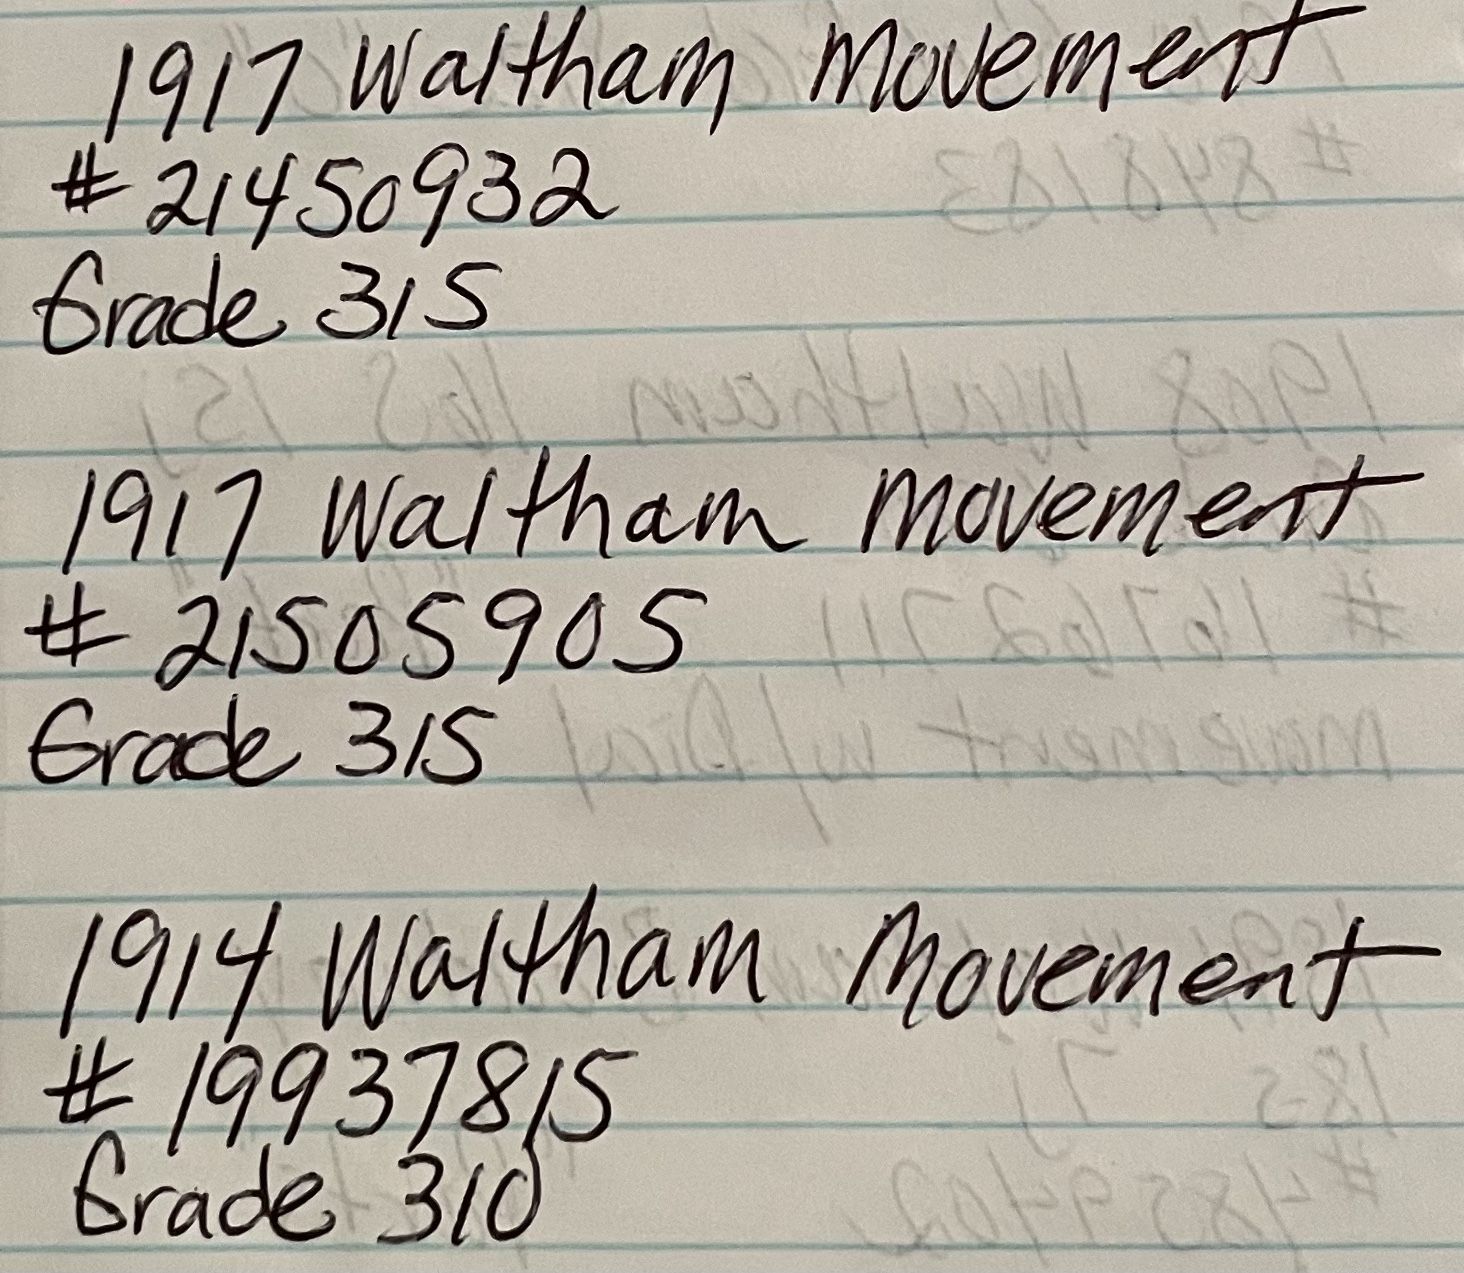 1917 Waltham Movement
# 21450932
Grade 315
1917 Waltham Movement
# 21505905
Grade 315
1914 Waltham Movement
# 19937815
Grade 310